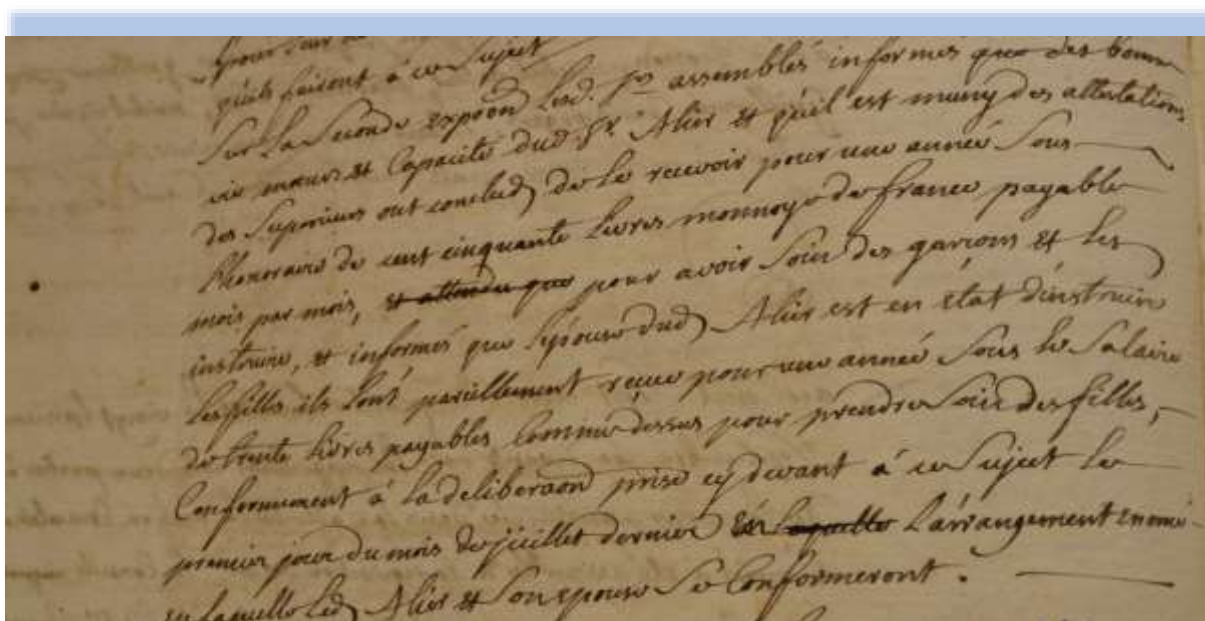 pour leur
quils feiront à ce Suject
Sur La Seconde expoõn Lesd. Srs assemblés informes que des bonne
vie mœurs et Capacité dud Sr. Alier et qu'il est muny des attestations
des Superieurs ont conclud de Le recevoir pour une année Sous
l'honoraire de cent cinquante Livres monnoye de france payable
mois par mois, et attendu que pour avoir Soin des garçons et les
instruire, et informés que L'épouse dud Alier est en état d'instruire
Les filles ils L'ont pareillement reçue pour une année Sous le Salaire
de trente livres payables Comme dessus pour prendre Soin des filles,
Conformement à La deliberaõn prise cy devant à ce Suject le
premier jour du mois de juillet dernier en laquelle L'arrangement enoncé
en laquelle Led Alier et Son epouse Se Conformeront.